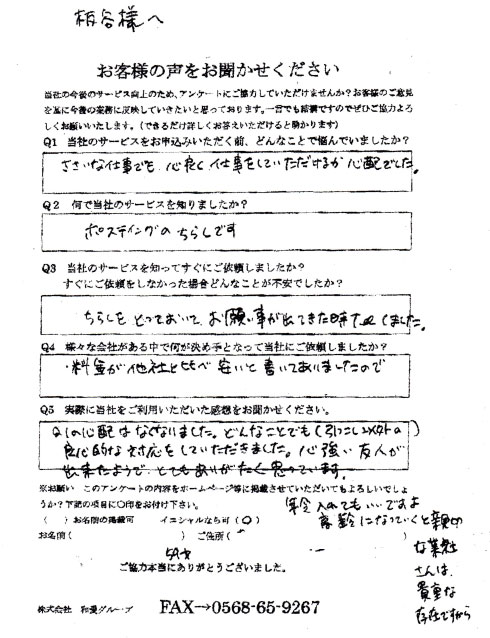 板谷様へ
お客様の声をお聞かせください
当社の今後のサービス向上のため、アンケートにご協力していただけませんか？お客様のご意見
を基に今後の業務に反映していきたいと思っております。一言でも結構ですのでぜひご協力よろ
しくお願いいたします。（できるだけ詳しくお答えいただけると助かります）
Q1 当社のサービスをお申込みいただく前、どんなことで悩んでいましたか？
ささいな仕事でも、心良く仕事をしていただけるか心配でした。
Q2 何で当社のサービスを知りましたか？
ポスティングのちらしです
Q3 当社のサービスを知ってすぐにご依頼しましたか？
すぐにご依頼をしなかった場合どんなことが不安でしたか？
ちらしをとっておいて、お願い事が出てきた時TELしました。
Q4 様々な会社がある中で何が決め手となって当社にご依頼しましたか？
・料金が他社と比べ安いと書いてありましたので
Q5 実際に当社をご利用いただいた感想をお聞かせください。
Q1の心配はなくなりました。どんなことでも（引っこし以外の）
良心的な対応をしていただきました。心強い友人が
出来たようで、とてもありがたく思っています。
※お願い このアンケートの内容をホームページ等に掲載させていただいてもよろしいでしょ
うか？下記の項目に〇印をお付け下さい。
（ ）お名前の掲載可 イニシャルなら可（〇）
お名前（ ） ご住所（
年令入れてもいいですよ
高齢になっていくと親切
な業者
さんは、
貴重な
存在ですから
ご協力本当にありがとうございました。
株式会社 和愛グループ FAX→0568-65-9267